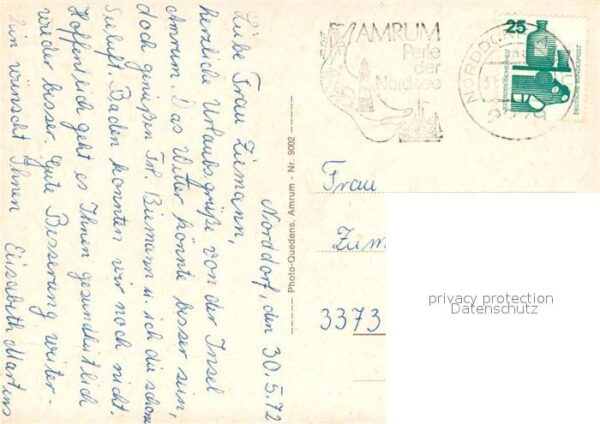 Norddorf, den 30.5.72
Liebe Frau Ziemann,
herzliche Urlaubsgrüße von der Insel
Amrum. Das Wetter könnte besser sein,
doch genießen Frl. Biemann u. ich die schöne
Seeluft. Baden konnten wir noch nicht.
Hoffentlich geht es Ihnen gesundheitlich
wieder besser. Gute Besserung weiter-
hin wünscht Ihnen Elisabeth Martins
Photo-Quedens, Amrum - Nr. 9002
AMRUM
Perle
der
Nordsee
NORDDORF
25
DEUTSCHE BUNDESPOST
Frau
Ziem
3373
privacy protection
Datenschutz